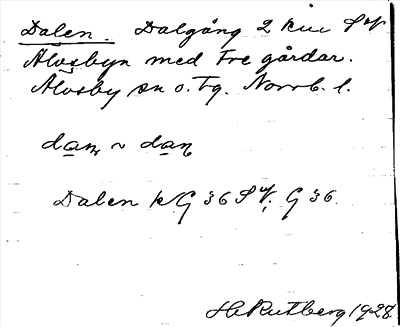 Dalen. Dalgång 2 km SV
Älvsbyn med tre gårdar.
Älvsby sn o. tg. Norrb. l.
dan ~ dan
Dalen kG 36 SV, G 36.
H. Rutberg 1928.